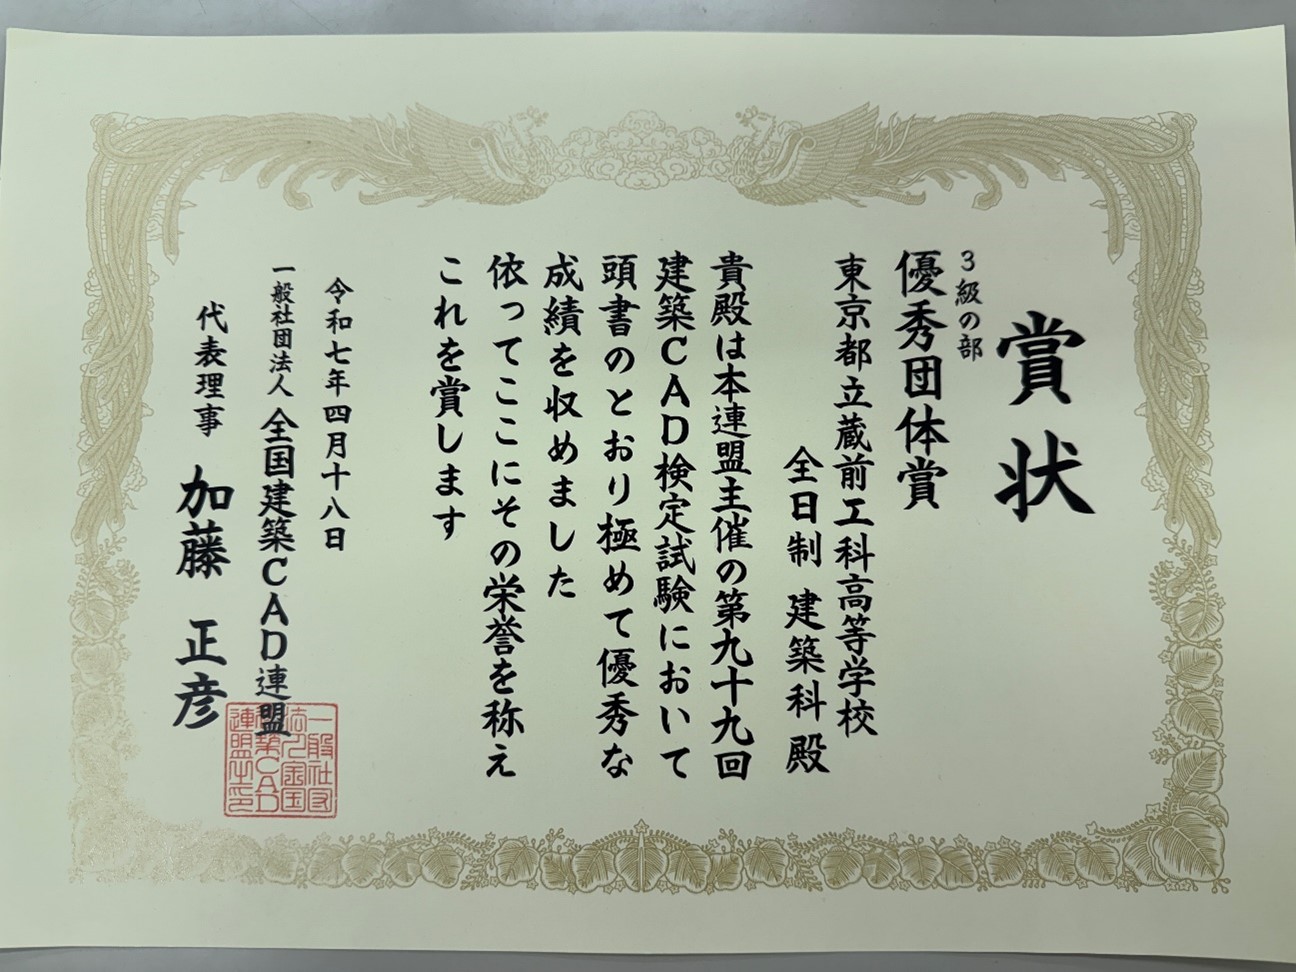 賞状
3級の部
優秀団体賞
東京都立蔵前工科高等学校
全日制 建築科 殿
貴殿は本連盟主催の第九十九回
建築CAD検定試験において
頭書のとおり極めて優秀な
成績を収めました
依ってここにその栄誉を称え
これを賞します
令和七年四月十八日
一般社団法人 全国建築CAD連盟
代表理事 加藤 正彦
一般社団
法人全国
建築CAD
連盟之印